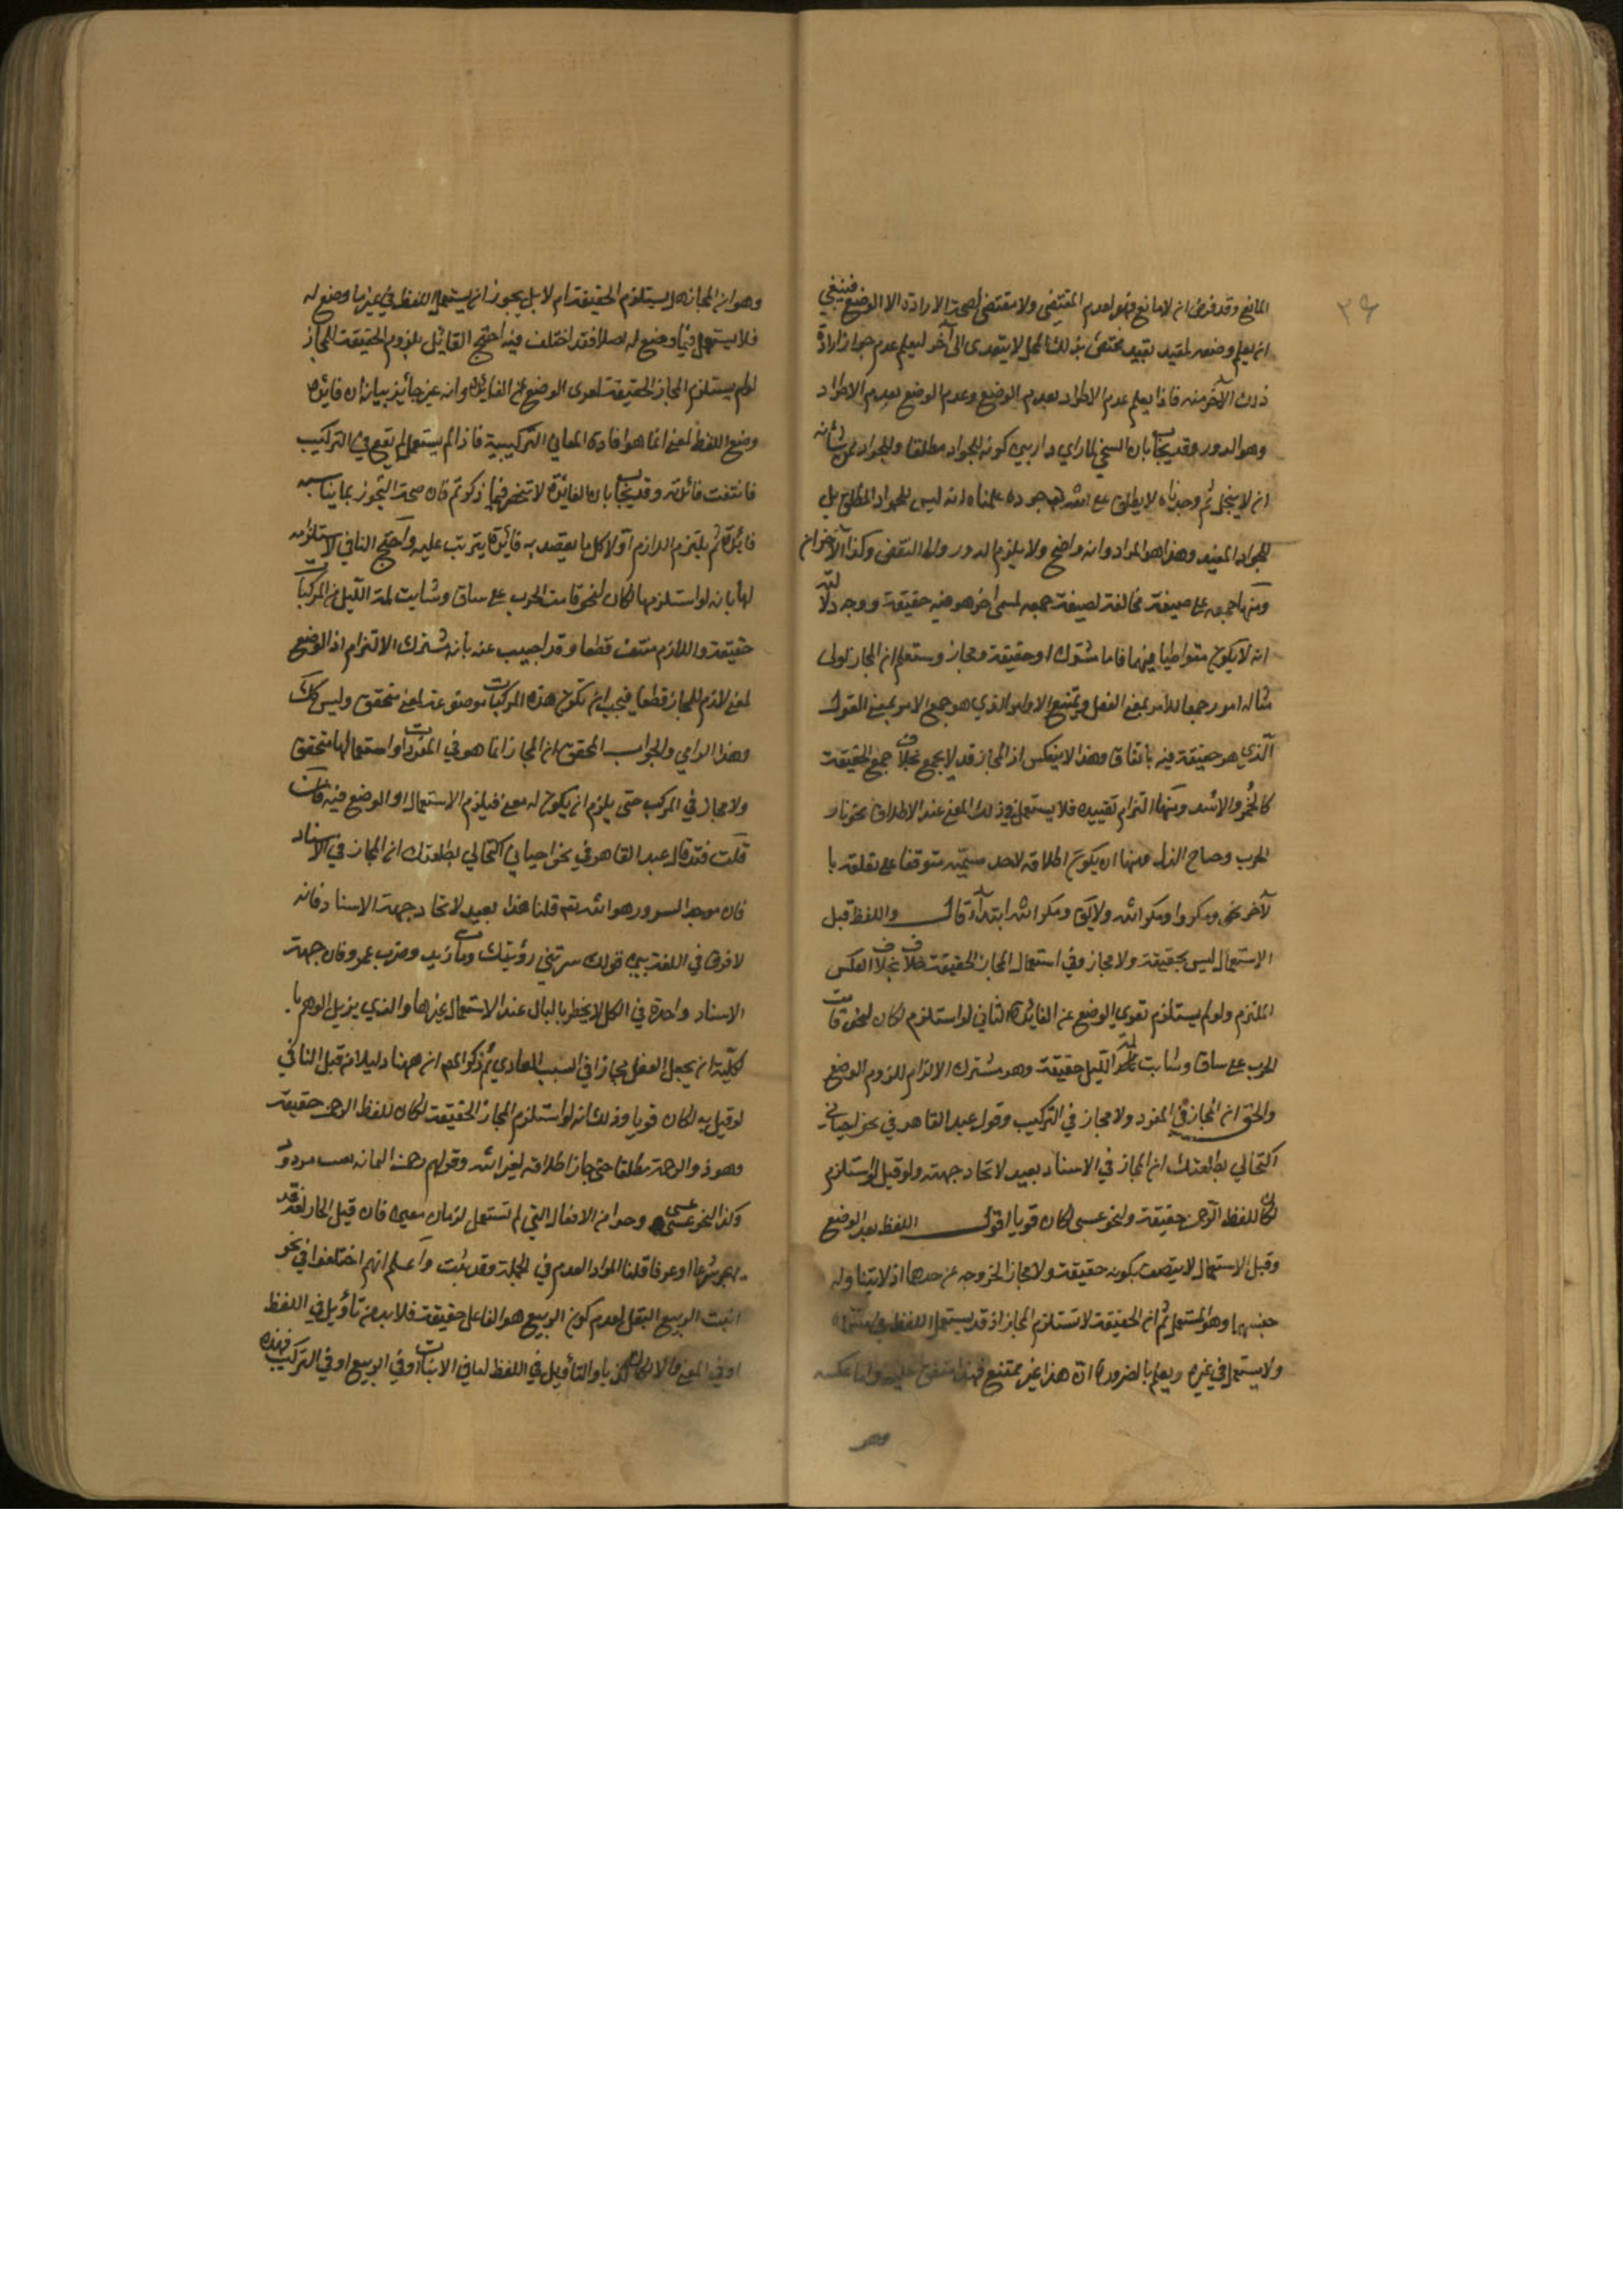 ٣٩
المانع وقد فرض ان لا مانع فهو لعدم المقتضى ولا مقتضى لصحة الارادة الا الوضع فينبغي
ان يعلم وضعه لمقيد بقيد مختص بذلك المحل لا يتعدى الى آخر ليعلم عدم جواز ارادة
ذلك الآخر منه فاذا يعلم عدم الاطراد بعدم الوضع وعدم الوضع بعدم الاطراد
وهو الدور وقد يجاب بان السخي لما راى دار بين كونه للجواد مطلقا وللجواد ممن شانه
ان لا يبخل ثم وجدناه لا يطلق على الله مع جوده علمنا انه ليس للجواد المطلق بل
للجواد المقيد وهذا هو المراد وانه واضح ولا يلزم الدور والا النقض وكذا الآخران
ومنها جمعه على صيغة مخالفة لصيغة جمعه لمسمى اخر هو فيه حقيقة ووجه دلالته
انه لا يكون متواطيا فيهما فاما مشترك او حقيقة ومجاز وستعلم ان المجاز اولى
مثاله امور جمعا للامر بمعنى الفعل ويمتنع الاوامر الذي هو جمع الامر بمعنى القول
الذي هو حقيقة فيه باتفاق وهذا لا ينعكس اذ المجاز قد لا يجمع بخلاف جمع الحقيقة
كالحُمُر والاسد ومنها التزام تقييده فلا يستعمل في ذلك المعنى عند الاطلاق نحو نار
الحرب وجناح الذل ومنها ان يكون اطلاقه لاحد مسمييه متوقفا على تعلقه با
لآخر نحو ومكروا ومكر الله ولا يقال ومكر الله ابتداء قال واللفظ قبل
الاستعمال ليس بحقيقة ولا مجاز وفي استعمال المجاز الحقيقة خلاف بخلاف العكس
الملتزم ولو لم يستلزم لعري الوضع عن الفائدة الثاني لو استلزم لكان لنحو قامت
الحرب على ساق وشابت لمة الليل حقيقة وهو مشترك الالزام للزوم الوضع
والحق ان المجاز في المفرد ولا مجاز في التركيب وقول عبد القاهر في نحو احياني
اكتحالي بطلعتك ان المجاز في الاسناد بعيد لاتحاد جهته ولو قيل لو استلزم
لكان للفظ الرحمن حقيقة ولنحو عسى لكان قويا اقول اللفظ بعد الوضع
وقبل الاستعمال لا يتصف بكونه حقيقة ولا مجازا لخروجه عن حدهما اذ لا يتناوله
جنسهما وهو المستعمل ثم ان الحقيقة لا تستلزم المجاز اذ قد يستعمل اللفظ في مسماه
ولا يستعمل في غيره ويعلم بالضرورة ان هذا غير ممتنع فهذا متفق عليه واما عكسه
وهو
وهو ان المجاز هل يستلزم الحقيقة ام لا بل يجوز ان يستعمل اللفظ في غير ما وضع له
فلا يستعمل فيما وضع له اصلا فقد اختلف فيه احتج القائل بلزوم الحقيقة للمجاز
لو لم يستلزم المجاز الحقيقة لعري الوضع عن الفائدة وانه غير جائز بيانه ان فائدة
وضع اللفظ لمعنى انما هو افادة المعاني التركيبية فاذا لم يستعمل لم يقع في التركيب
فانتفت فائدته وقد يجاب بان الفائدة لا تنحصر فيما ذكرتم فان صحة التجوز بما يناسبه
فائدة ثم يلتزم اللازم اولا كل ما يقصد به فائدة يترتب عليه واحتج النافي لاستلزامه
لها بانه لو استلزمها لكان لنحو قامت الحرب على ساق وشابت لمة الليل من المركبات
حقيقة واللازم منتف قطعا وقد اجيب عنه بانه مشترك الالتزام اذ الوضع
لمعنى لازم للمجاز قطعا فيجب ان تكون هذه المركبات موضوعة لمعنى متحقق وليس كذلك
وهذا الزامي والجواب المحقق ان المجاز انما هو في المفردات واستعمالها متحقق
ولا مجاز في المركب حتى يلزم ان يكون له معنى فيلزم الاستعمال او الوضع فيه فان
قلت فقد قال عبد القاهر في نحو احياني اكتحالي بطلعتك ان المجاز في الاسناد
فان موجد السرور هو الله تعالى قلنا هذا بعيد لاتحاد جهة الاسناد فانه
لا فرق في اللغة بين قولك سرتني رؤيتك ومات زيد وضرب عمرو فان جهة
الاسناد واحدة في الكل لا يخطر بالبال عند الاستعمال غيرها والذي يزيل الوهم با
لكلية ان يجعل الفعل مجازا في السبب العادي ثم ذكر المص ان ههنا دليلا من قبل النافي
لو قيل به لكان قويا وذلك انه لو استلزم المجاز الحقيقة لكان للفظ الرحمن حقيقة
وهو ذو الرحمة مطلقا حتى جاز اطلاقه لغير الله وقولهم رحمن اليمامة تعنت مردود
وكذا لنحو عسى وحبذا من الافعال التي لم تستعمل لزمان معين فان قيل المجاز لغة قد
يهجر شرعا او عرفا قلنا المراد العدم في الجملة وقد ثبت واعلم انهم اختلفوا في نحو
انبت الربيع البقل لعدم كون الربيع هو الفاعل حقيقة فلا بد من تأويل في اللفظ
او في المعنى والا لكان كذبا والتأويل في اللفظ اما في الانبات او في الربيع او في التركيب فهذه